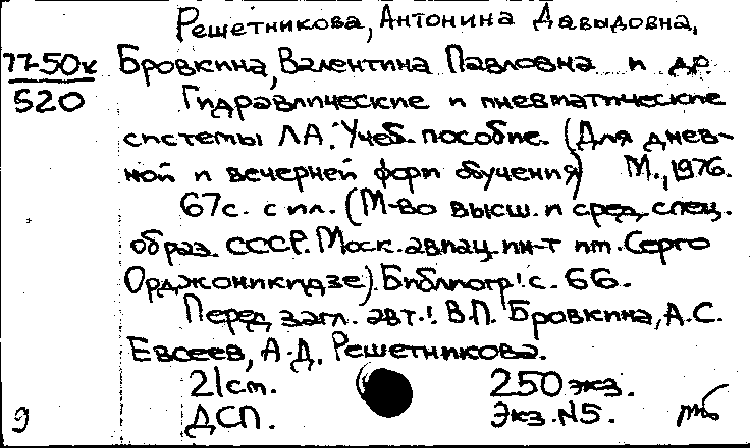 Решетникова, Антонина Давыдовна,
77-50к Бровкина, Валентина Павловна и др.
520 Гидравлические и пневматические
системы ЛА. Учеб. пособие. (Для днев-
ной и вечерней форм обучения) М., 1976.
67с. с ил. (М-во высш. и сред. спец.
образ. СССР. Моск. авиац. ин-т им. Серго
Орджоникидзе). Библиогр.: с. 66.
Перед загл. авт.: В.П. Бровкина, А.С.
Евсеев, А.Д. Решетникова.
21см. 250 экз.
9 ДСП. Экз. №5.